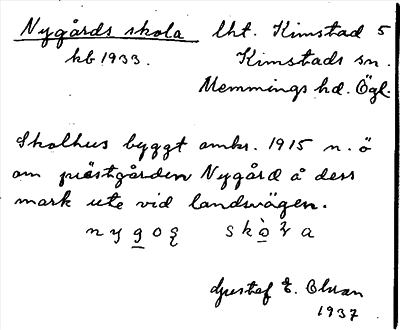 Nygårds skola lht. Kimstad 5
kb 1933. Kimstads sn.
Memmings hd. Ögl.
Skolhus byggt omkr. 1915 n. ö
om prästgården Nygård å dess
mark ute vid landsvägen.
Gustaf E. Olsson
1937.